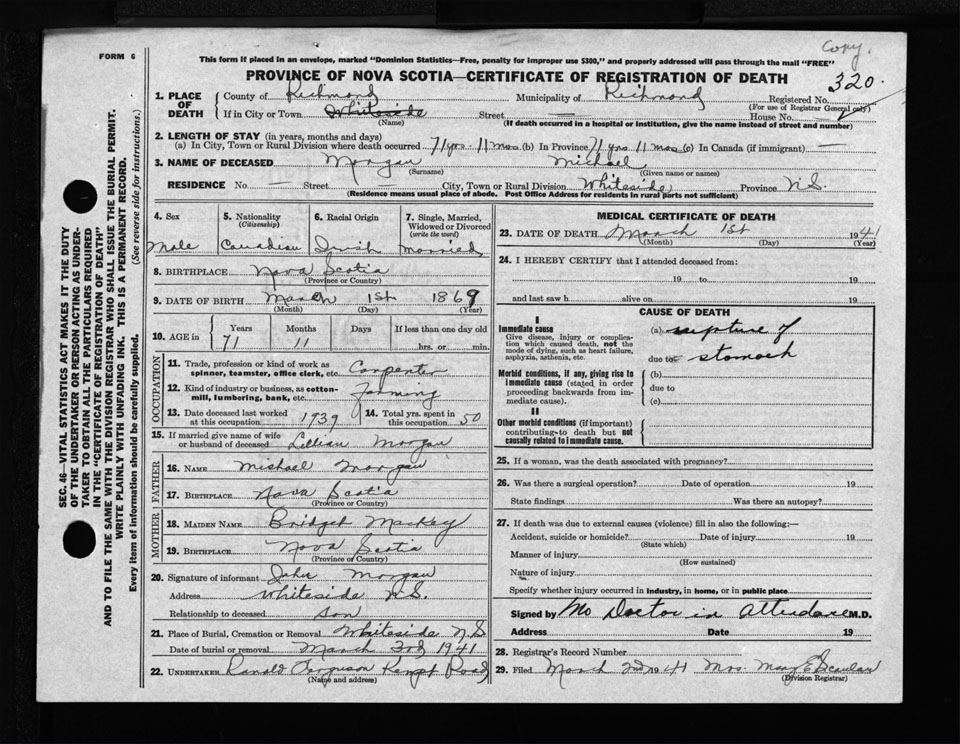 Copy.
FORM 6
This form if placed in an envelope, marked "Dominion Statistics—Free, penalty for improper use $300," and properly addressed will pass through the mail "FREE"
PROVINCE OF NOVA SCOTIA—CERTIFICATE OF REGISTRATION OF DEATH
320
1. PLACE OF DEATH County of Richmond Municipality of Richmond Registered No.
(For use of Registrar General only)
If in City or Town Whiteside Street — House No. —
(Name) (If death occurred in a hospital or institution, give the name instead of street and number)
2. LENGTH OF STAY (in years, months and days)
(a) In City, Town or Rural Division where death occurred 71 yrs. 11 mos (b) In Province 71 yrs 11 mos (c) In Canada (if immigrant) —
3. NAME OF DECEASED Morgan Michael
(Surname) (Given name or names)
RESIDENCE No. — Street City, Town or Rural Division Whiteside Province N.S.
(Residence means usual place of abode. Post Office Address for residents in rural parts not sufficient)
4. Sex 5. Nationality (Citizenship) 6. Racial Origin 7. Single, Married, Widowed or Divorced (write the word)
Male Canadian Irish Married
8. BIRTHPLACE Nova Scotia
(Province or Country)
9. DATE OF BIRTH March 1st 1869
(Month) (Day) (Year)
10. AGE in Years Months Days If less than one day old
71 11 hrs. or min.
OCCUPATION
11. Trade, profession or kind of work as spinner, teamster, office clerk, etc. Carpenter
12. Kind of industry or business, as cotton-mill, lumbering, bank, etc. Farming
13. Date deceased last worked at this occupation 1939 14. Total yrs. spent in this occupation 50
15. If married give name of wife or husband of deceased Lillian Morgan
FATHER
16. NAME Michael Morgan
17. BIRTHPLACE Nova Scotia
(Province or Country)
MOTHER
18. MAIDEN NAME Bridget Mackey
19. BIRTHPLACE Nova Scotia
(Province or Country)
20. Signature of informant John Morgan
Address Whiteside N.S.
Relationship to deceased son
21. Place of Burial, Cremation or Removal Whiteside N.S
Date of burial or removal March 3rd 1941
22. UNDERTAKER Ranald Ferguson Kempt Road
(Name and address)
MEDICAL CERTIFICATE OF DEATH
23. DATE OF DEATH March 1st 1941
(Month) (Day) (Year)
24. I HEREBY CERTIFY that I attended deceased from:
19 to 19
and last saw h alive on 19
CAUSE OF DEATH
I
Immediate cause (a) rupture of
Give disease, injury or complication which caused death, not the mode of dying, such as heart failure, asphyxia, asthenia, etc.
due to stomach
Morbid conditions, if any, giving rise to immediate cause (stated in order proceeding backwards from immediate cause).
(b)
due to
(c)
II
Other morbid conditions (if important) contributing to death but not causally related to immediate cause.
25. If a woman, was the death associated with pregnancy?
26. Was there a surgical operation? Date of operation 19
State findings Was there an autopsy?
27. If death was due to external causes (violence) fill in also the following:—
Accident, suicide or homicide? Date of injury 19
(State which)
Manner of injury
(How sustained)
Nature of injury
Specify whether injury occurred in industry, in home, or in public place
Signed by No Doctor in Attendance M.D.
Address Date 19
28. Registrar's Record Number
29. Filed March 2nd 1941 Mrs. Mary E Scanlan
(Division Registrar)
SEC. 46—VITAL STATISTICS ACT MAKES IT THE DUTY
OF THE UNDERTAKER OR PERSON ACTING AS UNDER-
TAKER TO OBTAIN ALL THE PARTICULARS REQUIRED
IN THE "CERTIFICATE OF REGISTRATION OF DEATH"
AND TO FILE THE SAME WITH THE DIVISION REGISTRAR WHO SHALL ISSUE THE BURIAL PERMIT.
WRITE PLAINLY WITH UNFADING INK. THIS IS A PERMANENT RECORD.
Every item of information should be carefully supplied. (See reverse side for instructions.)